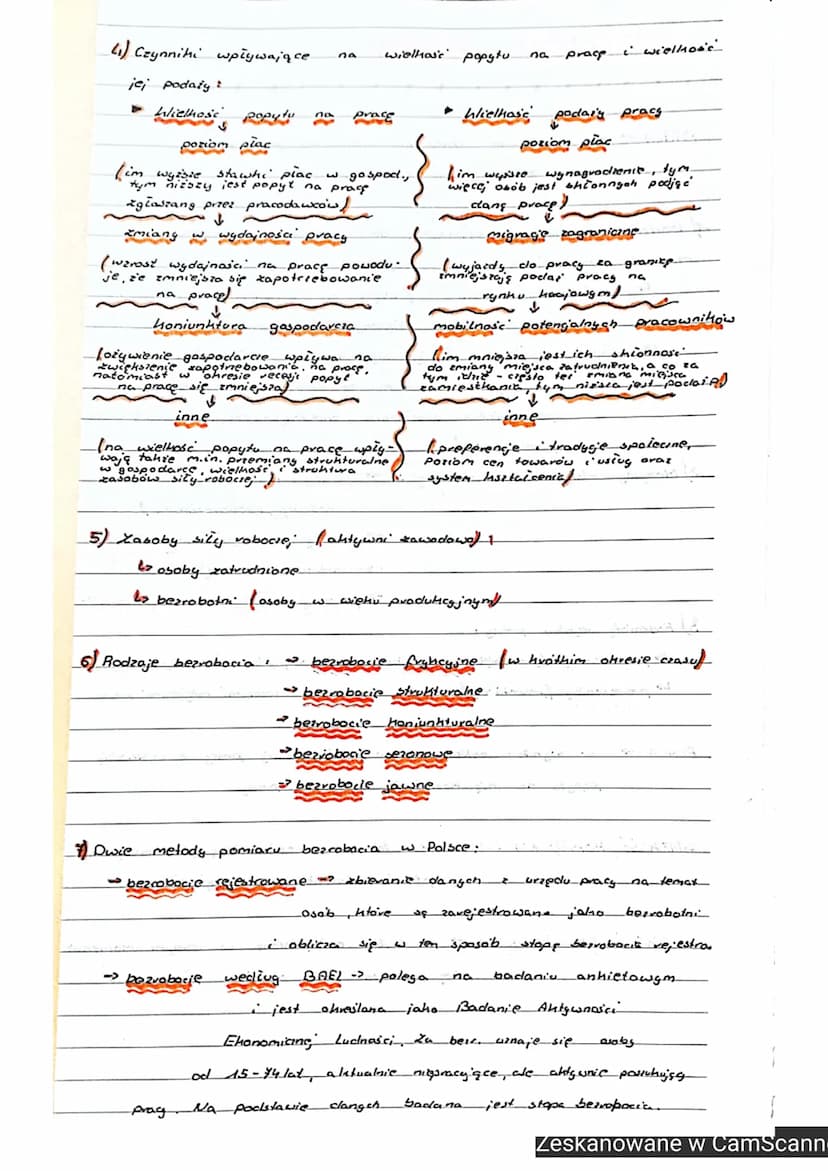 4) Czynniki wpływające na wielkość popytu na pracę i wielkość
jej podaży:
► Wielkość popytu na pracę
poziom płac
(im wyższe stawki płac w gospod.,
tym niższy jest popyt na pracę
zgłaszany przez pracodawców)
zmiany w wydajności pracy
(wzrost wydajności na pracę powodu-
je, że zmniejsza się zapotrzebowanie
na pracę)
koniunktura gospodarcza
(ożywienie gospodarcze wpływa na
zwiększenie zapotrzebowania na pracę,
natomiast w okresie recesji popyt
na pracę się zmniejsza)
inne
(na wielkość popytu na pracę wpły-
wają także m.in. przemiany strukturalne
w gospodarce, wielkość i struktura
zasobów siły roboczej)
► Wielkość podaży pracy
poziom płac
(im wyższe wynagrodzenie, tym
więcej osób jest skłonnych podjąć
daną pracę)
migracje zagraniczne
(wyjazdy do pracy za granicę
zmniejszają podaż pracy na
rynku krajowym)
mobilność potencjalnych pracowników
(im mniejsza jest ich skłonność
do zmiany miejsca zatrudnienia, a co za
tym idzie - często też zmiana miejsca
zamieszkania, tym niższa jest podaż)
inne
(preferencje i tradycje społeczne,
poziom cen towarów i usług oraz
system kształcenia)
5) Zasoby siły roboczej (aktywni zawodowo)
↳ osoby zatrudnione
↳ bezrobotni (osoby w wieku produkcyjnym)
6) Rodzaje bezrobocia: → bezrobocie frykcyjne (w krótkim okresie czasu)
→ bezrobocie strukturalne
→ bezrobocie koniunkturalne
→ bezrobocie sezonowe
→ bezrobocie jawne
7) Dwie metody pomiaru bezrobocia w Polsce:
→ bezrobocie rejestrowane → zbieranie danych z urzędu pracy na temat
osób, które są zarejestrowane jako bezrobotni
i oblicza się w ten sposób stopę bezrobocia rejestra
→ bezrobocie według BAEL → polega na badaniu ankietowym
i jest określana jako Badanie Aktywności
Ekonomicznej Ludności. Za bezr. uznaje się osoby
od 15-74 lat, aktualnie niepracujące, ale aktywnie poszukują
pracy. Na podstawie danych badana jest stopa bezrobocia.
Zeskanowane w CamScann